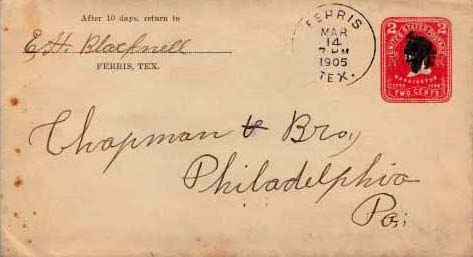 After 10 days, return to
E. H. Blacknell
FERRIS, TEX.
FERRIS
MAR
14
7 PM
1905
TEX.
2 UNITED STATES POSTAGE 2
WASHINGTON
TWO CENTS
Chapman & Bro,
Philadelphia
Pa.